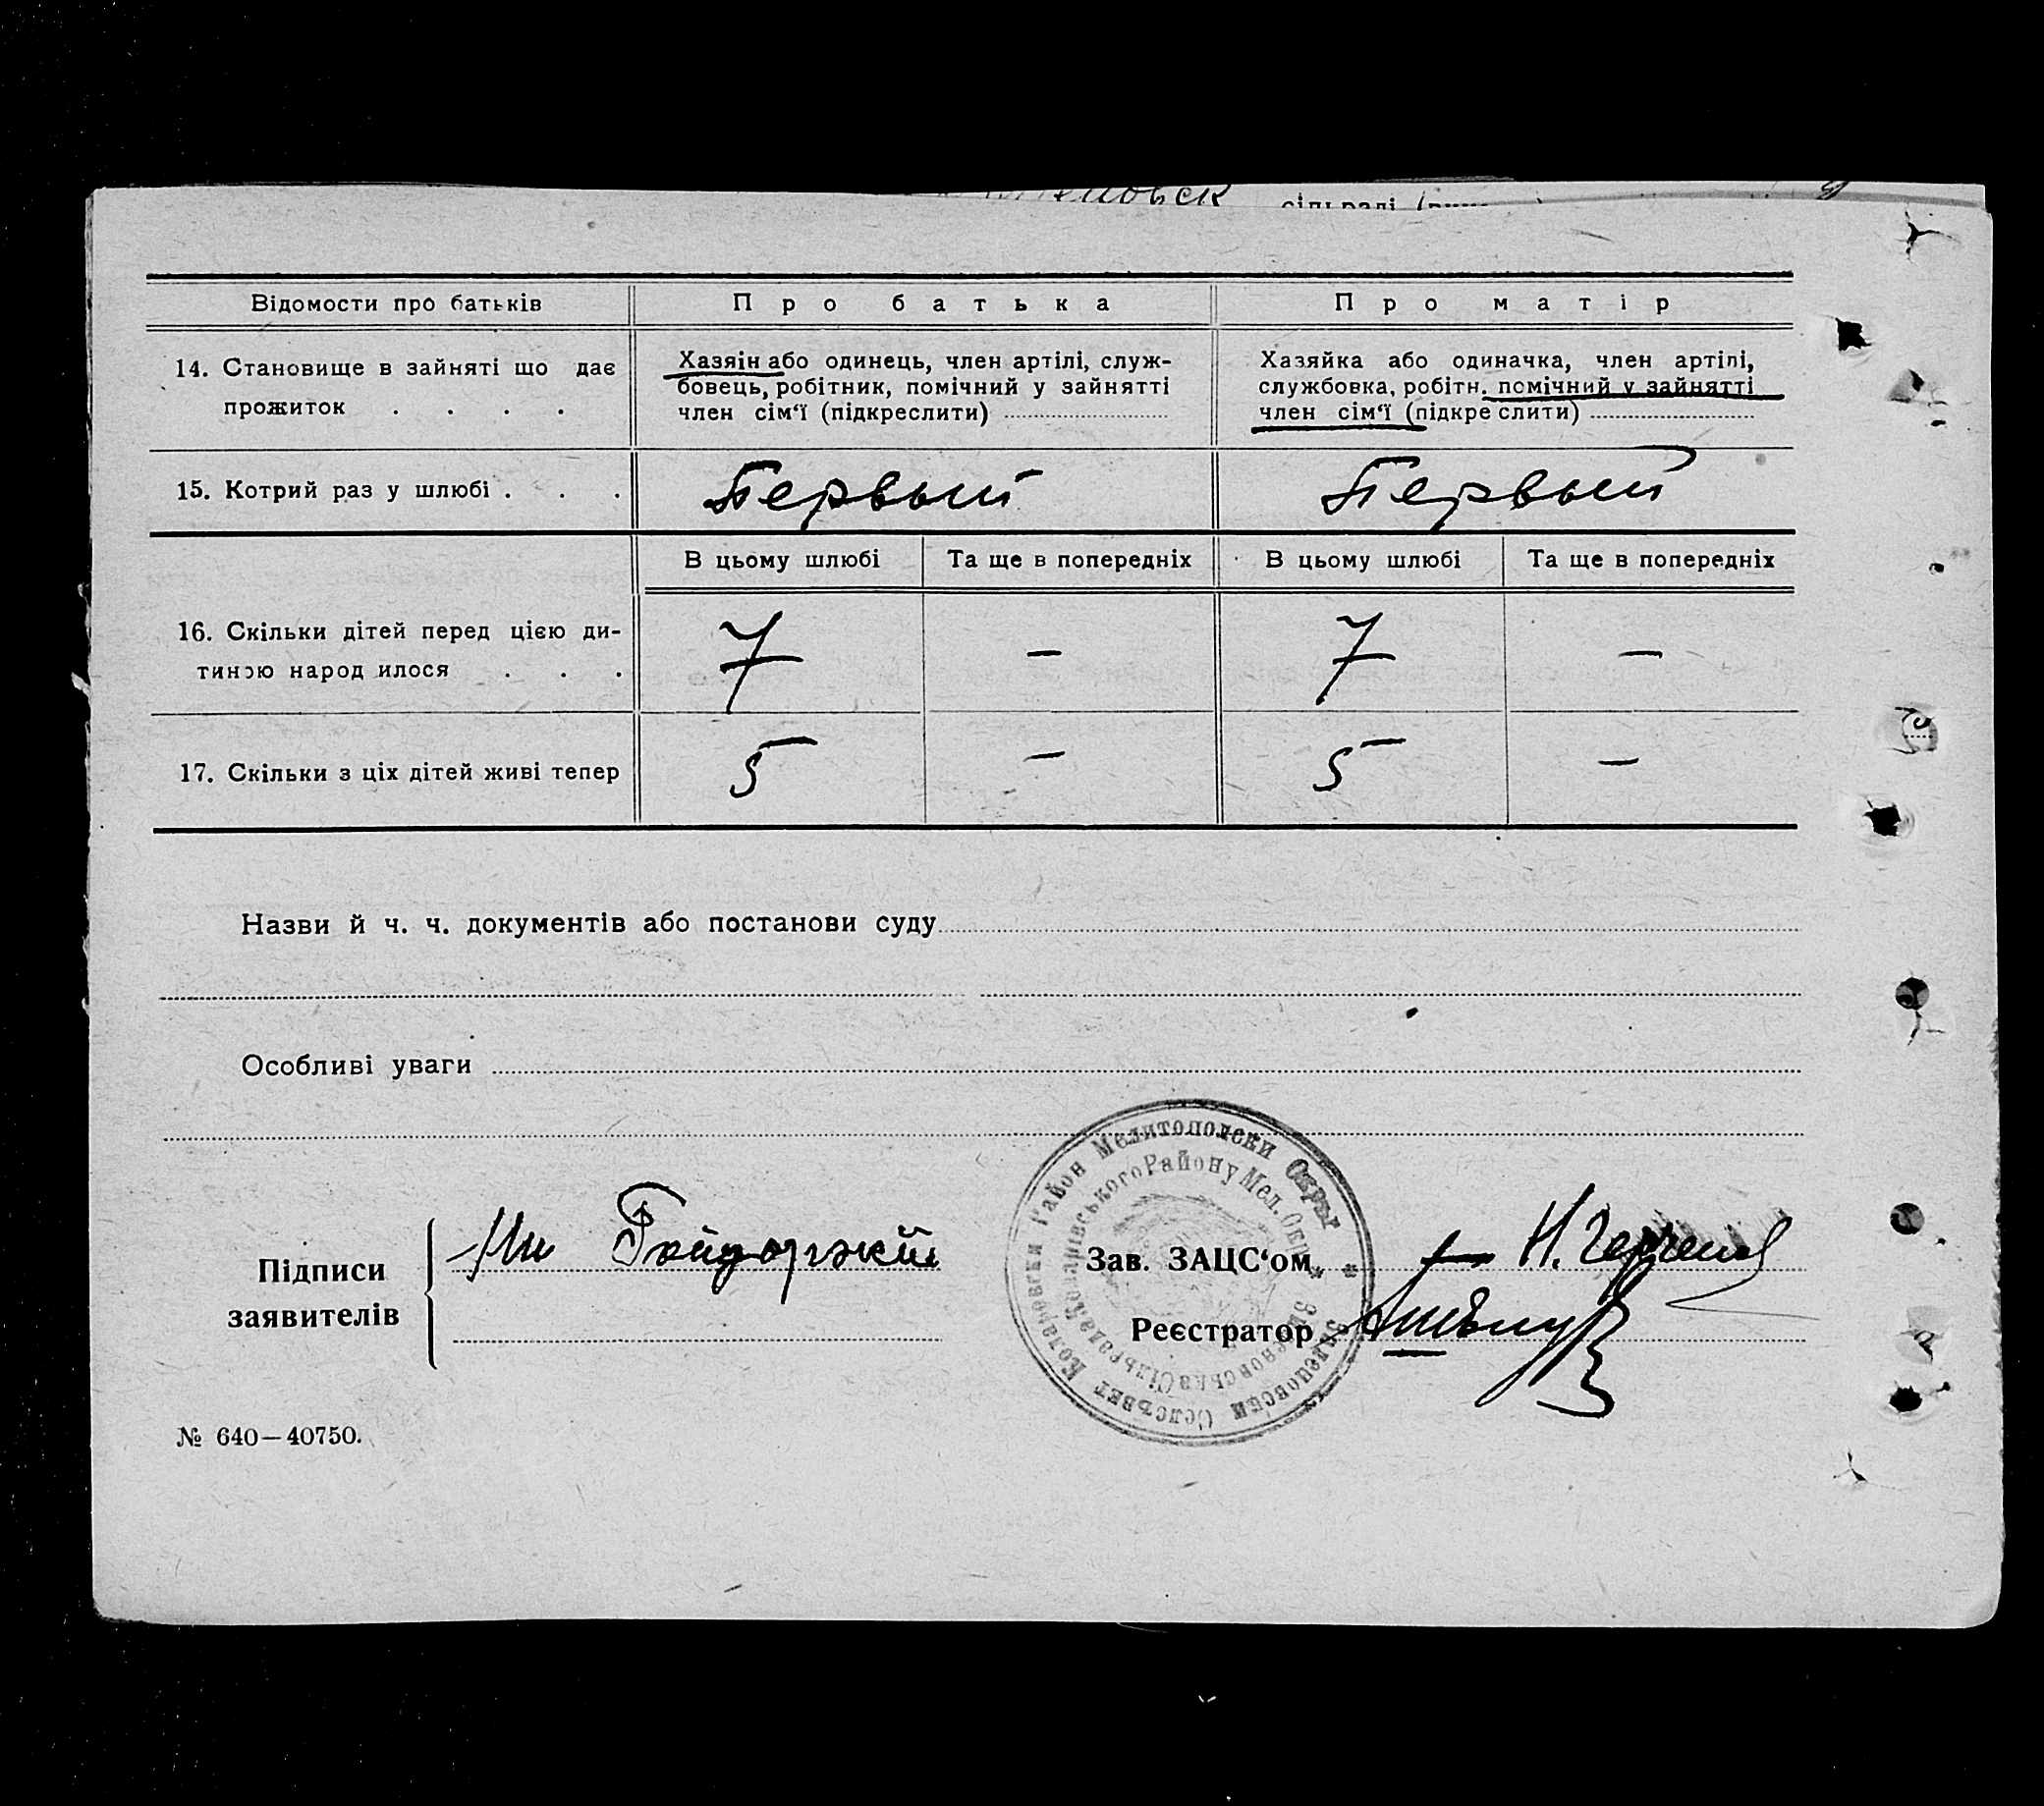 сільраді
Відомости про батьків Про батька Про матір
14. Становище в зайняті що дає
прожиток . . . .
Хазяін або одинець, член артілі, служ-
бовець, робітник, помічний у зайнятті
член сім‘ї (підкреслити)
Хазяйка або одиначка, член артілі,
службовка, робітн. помічний у зайнятті
член сім‘ї (підкре слити)
15. Котрий раз у шлюбі . . . Первый Первый
В цьому шлюбі Та ще в попередніх В цьому шлюбі Та ще в попередніх
16. Скільки дітей перед цією ди-
тиною народ илося . . . 7 — 7 —
17. Скільки з ціх дітей живі тепер 5 — 5 —
Назви й ч. ч. документів або постанови суду
Особливі уваги
Район Мелитополски Окръг
Району Мел. Окр.
Селсъвет
Підписи
заявителів
Зав. ЗАЦС‘ом
Реєстратор
№ 640—40750.